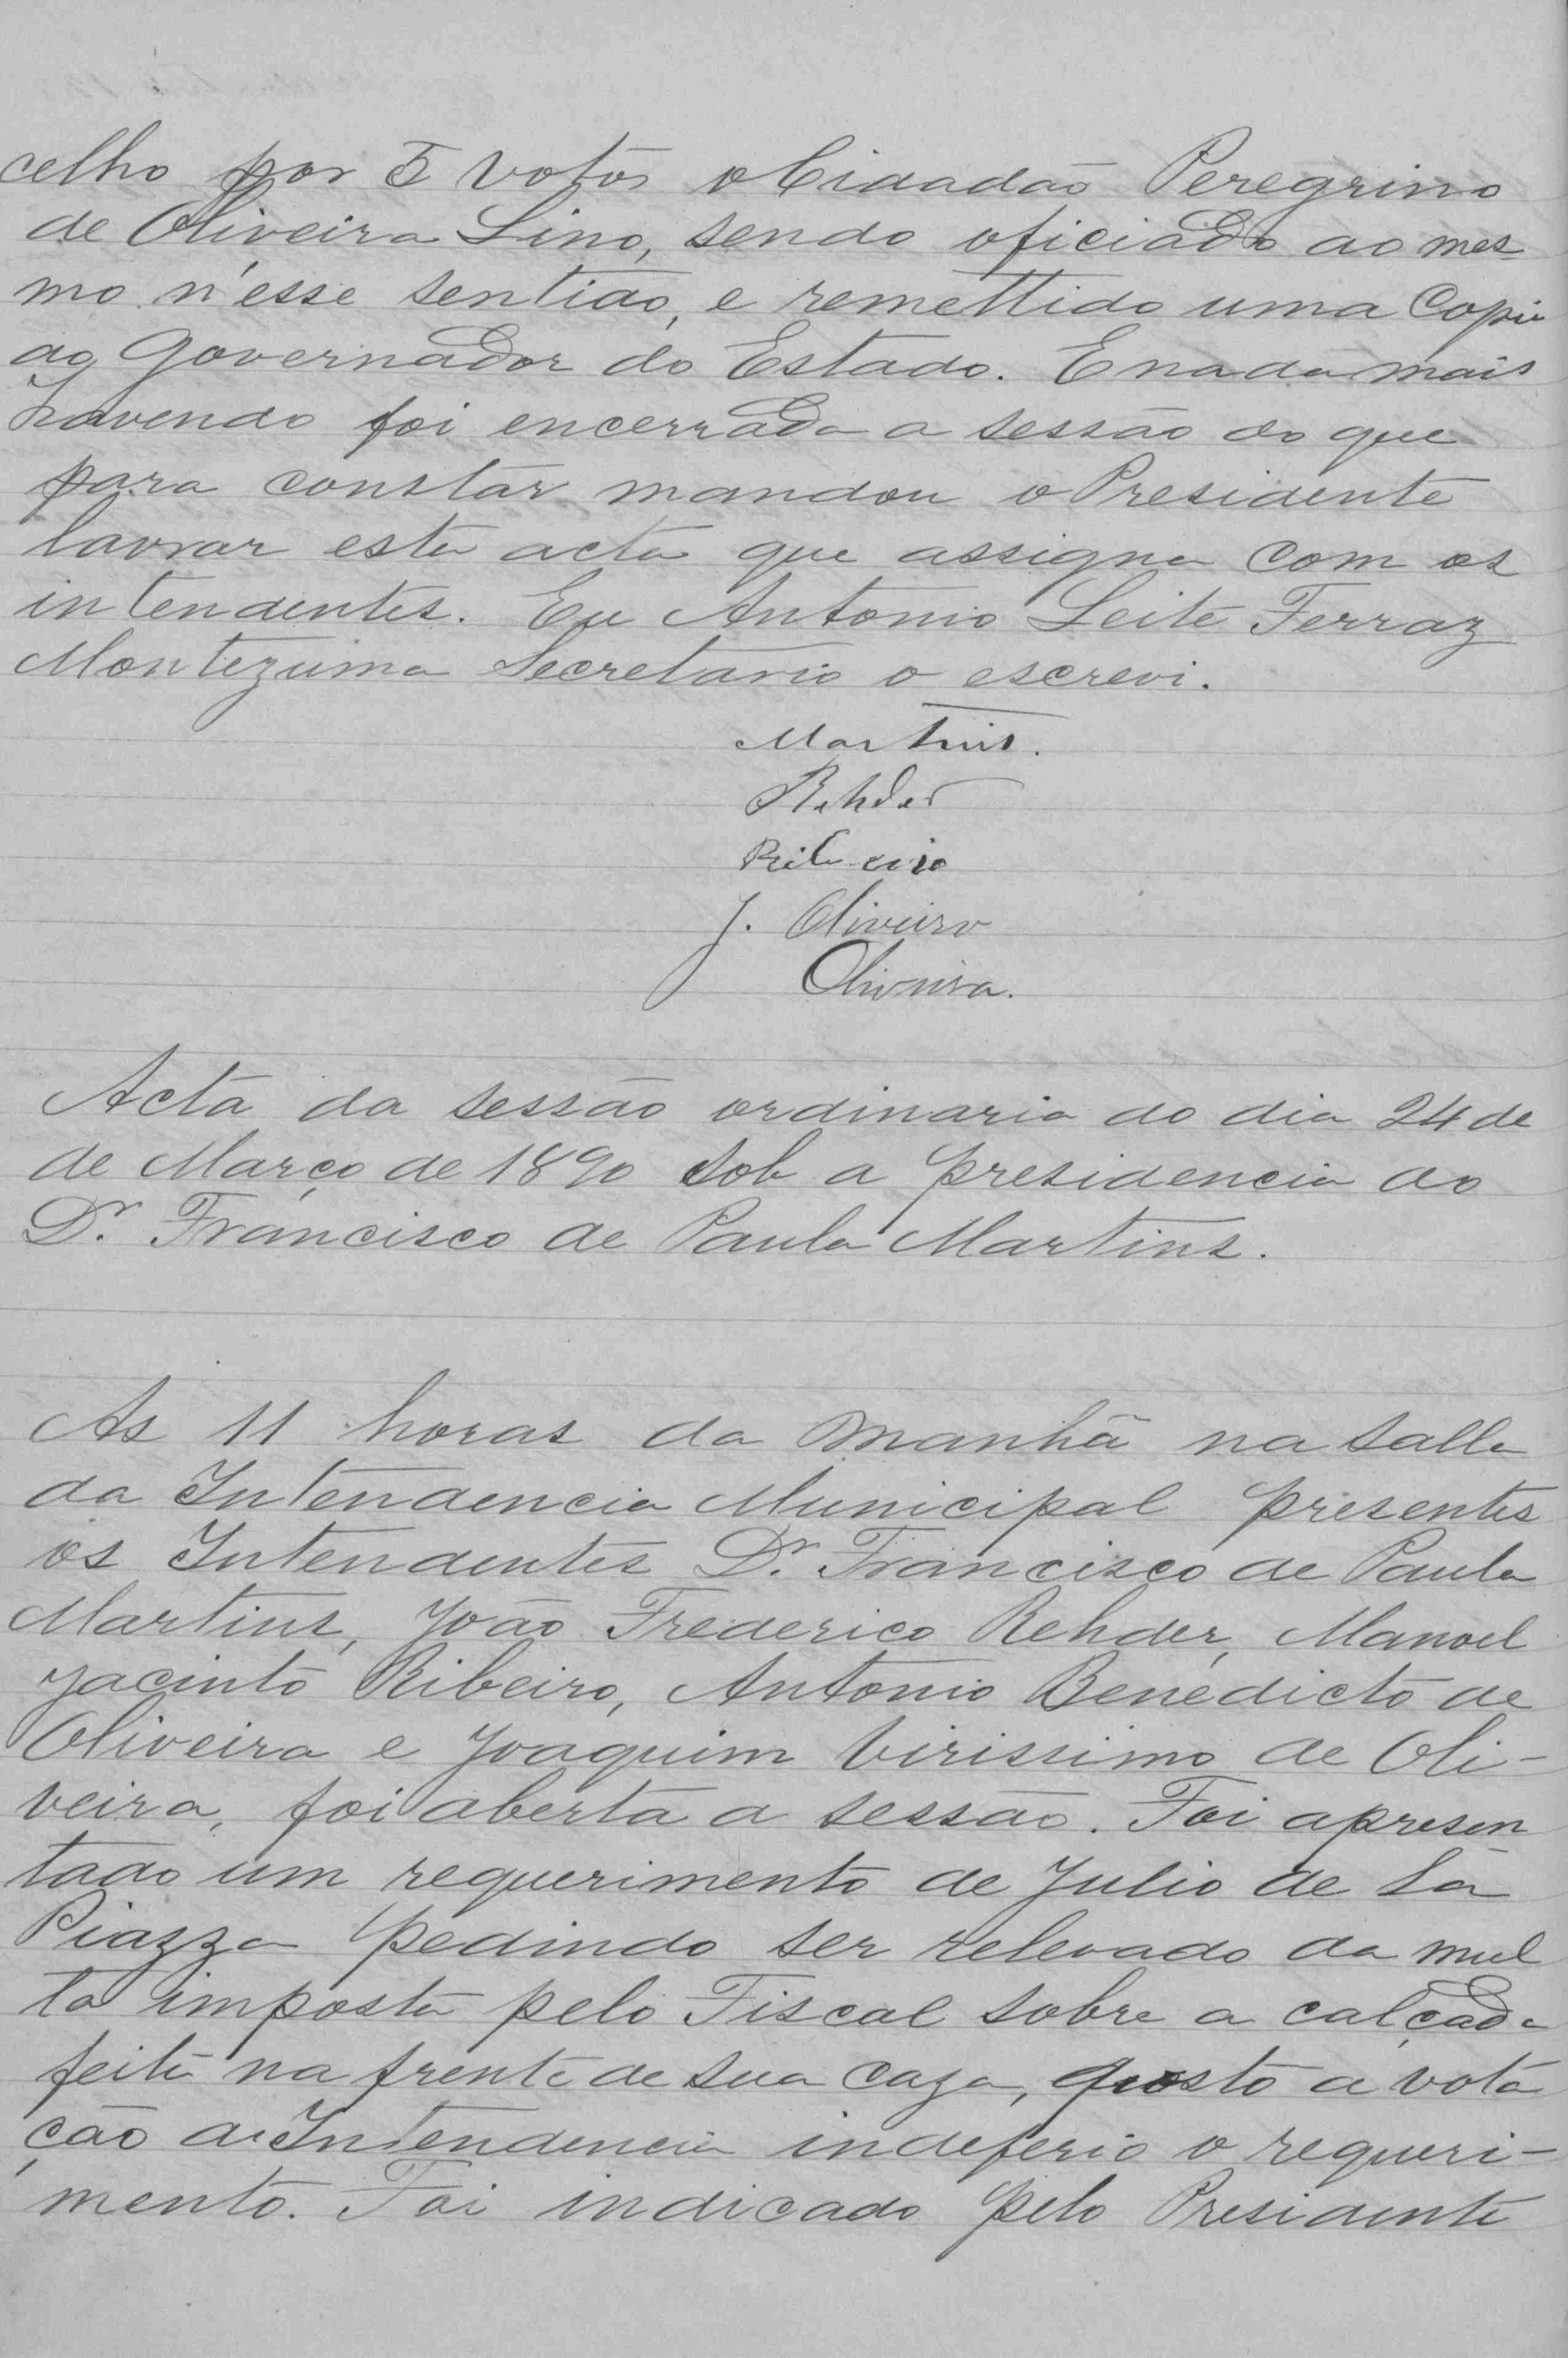 celho por 5 votos o Cidadão Peregrino
de Oliveira Lino, sendo oficiado ao mes
mo n'esse sentido, e remettido uma Copia
ao Governador do Estado. E nada mais
havendo foi encerrada a sessão do que
para constar mandou o Presidente
lavrar esta acta que assigna com os
intendentes. Eu Antonio Leite Ferraz
Montezuma Secretario o escrevi.
Martins.
Rehder
Ribeiro
J. Oliveira
Oliveira.
Acta da sessão ordinaria do dia 24 de
de Março de 1890 sob a presidencia do
Dr. Francisco de Paula Martins.
As 11 horas da manhã na salla
da Intendencia Municipal presentes
os Intendentes Dr. Francisco de Paula
Martins, João Frederico Rehder, Manoel
Jacinto Ribeiro, Antonio Benedicto de
Oliveira e Joaquim Virissimo de Oli-
veira, foi aberta a sessão. Foi apresen
tado um requerimento de Julio de La
Piazza pedindo ser relevado da mul
ta imposta pelo Fiscal sobre a calçada
feita na frente de sua caza, posto a vota
ção a Intendencia indeferio o requeri-
mento. Foi indicado pelo Presidente